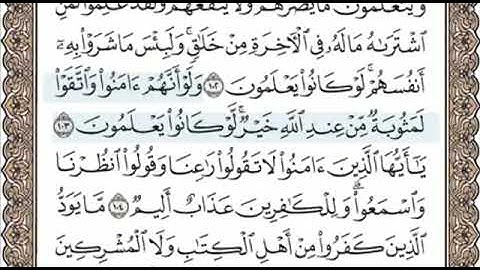 وَيَتَعَلَّمُونَ مَا يَضُرُّهُمْ وَلَا يَنفَعُهُمْ وَلَقَدْ عَلِمُوا۟ لَمَنِ
ٱشْتَرَىٰهُ مَا لَهُۥ فِى ٱلْءَاخِرَةِ مِنْ خَلَٰقٍ ۚ وَلَبِئْسَ مَا شَرَوْا۟ بِهِۦٓ
أَنفُسَهُمْ ۚ لَوْ كَانُوا۟ يَعْلَمُونَ ١٠٢ وَلَوْ أَنَّهُمْ ءَامَنُوا۟ وَٱتَّقَوْا۟
لَمَثُوبَةٌ مِّنْ عِندِ ٱللَّهِ خَيْرٌ ۖ لَّوْ كَانُوا۟ يَعْلَمُونَ ١٠٣
يَٰٓأَيُّهَا ٱلَّذِينَ ءَامَنُوا۟ لَا تَقُولُوا۟ رَٰعِنَا وَقُولُوا۟ ٱنظُرْنَا
وَٱسْمَعُوا۟ ۗ وَلِلْكَٰفِرِينَ عَذَابٌ أَلِيمٌ ١٠٤ مَّا يَوَدُّ
ٱلَّذِينَ كَفَرُوا۟ مِنْ أَهْلِ ٱلْكِتَٰبِ وَلَا ٱلْمُشْرِكِينَ